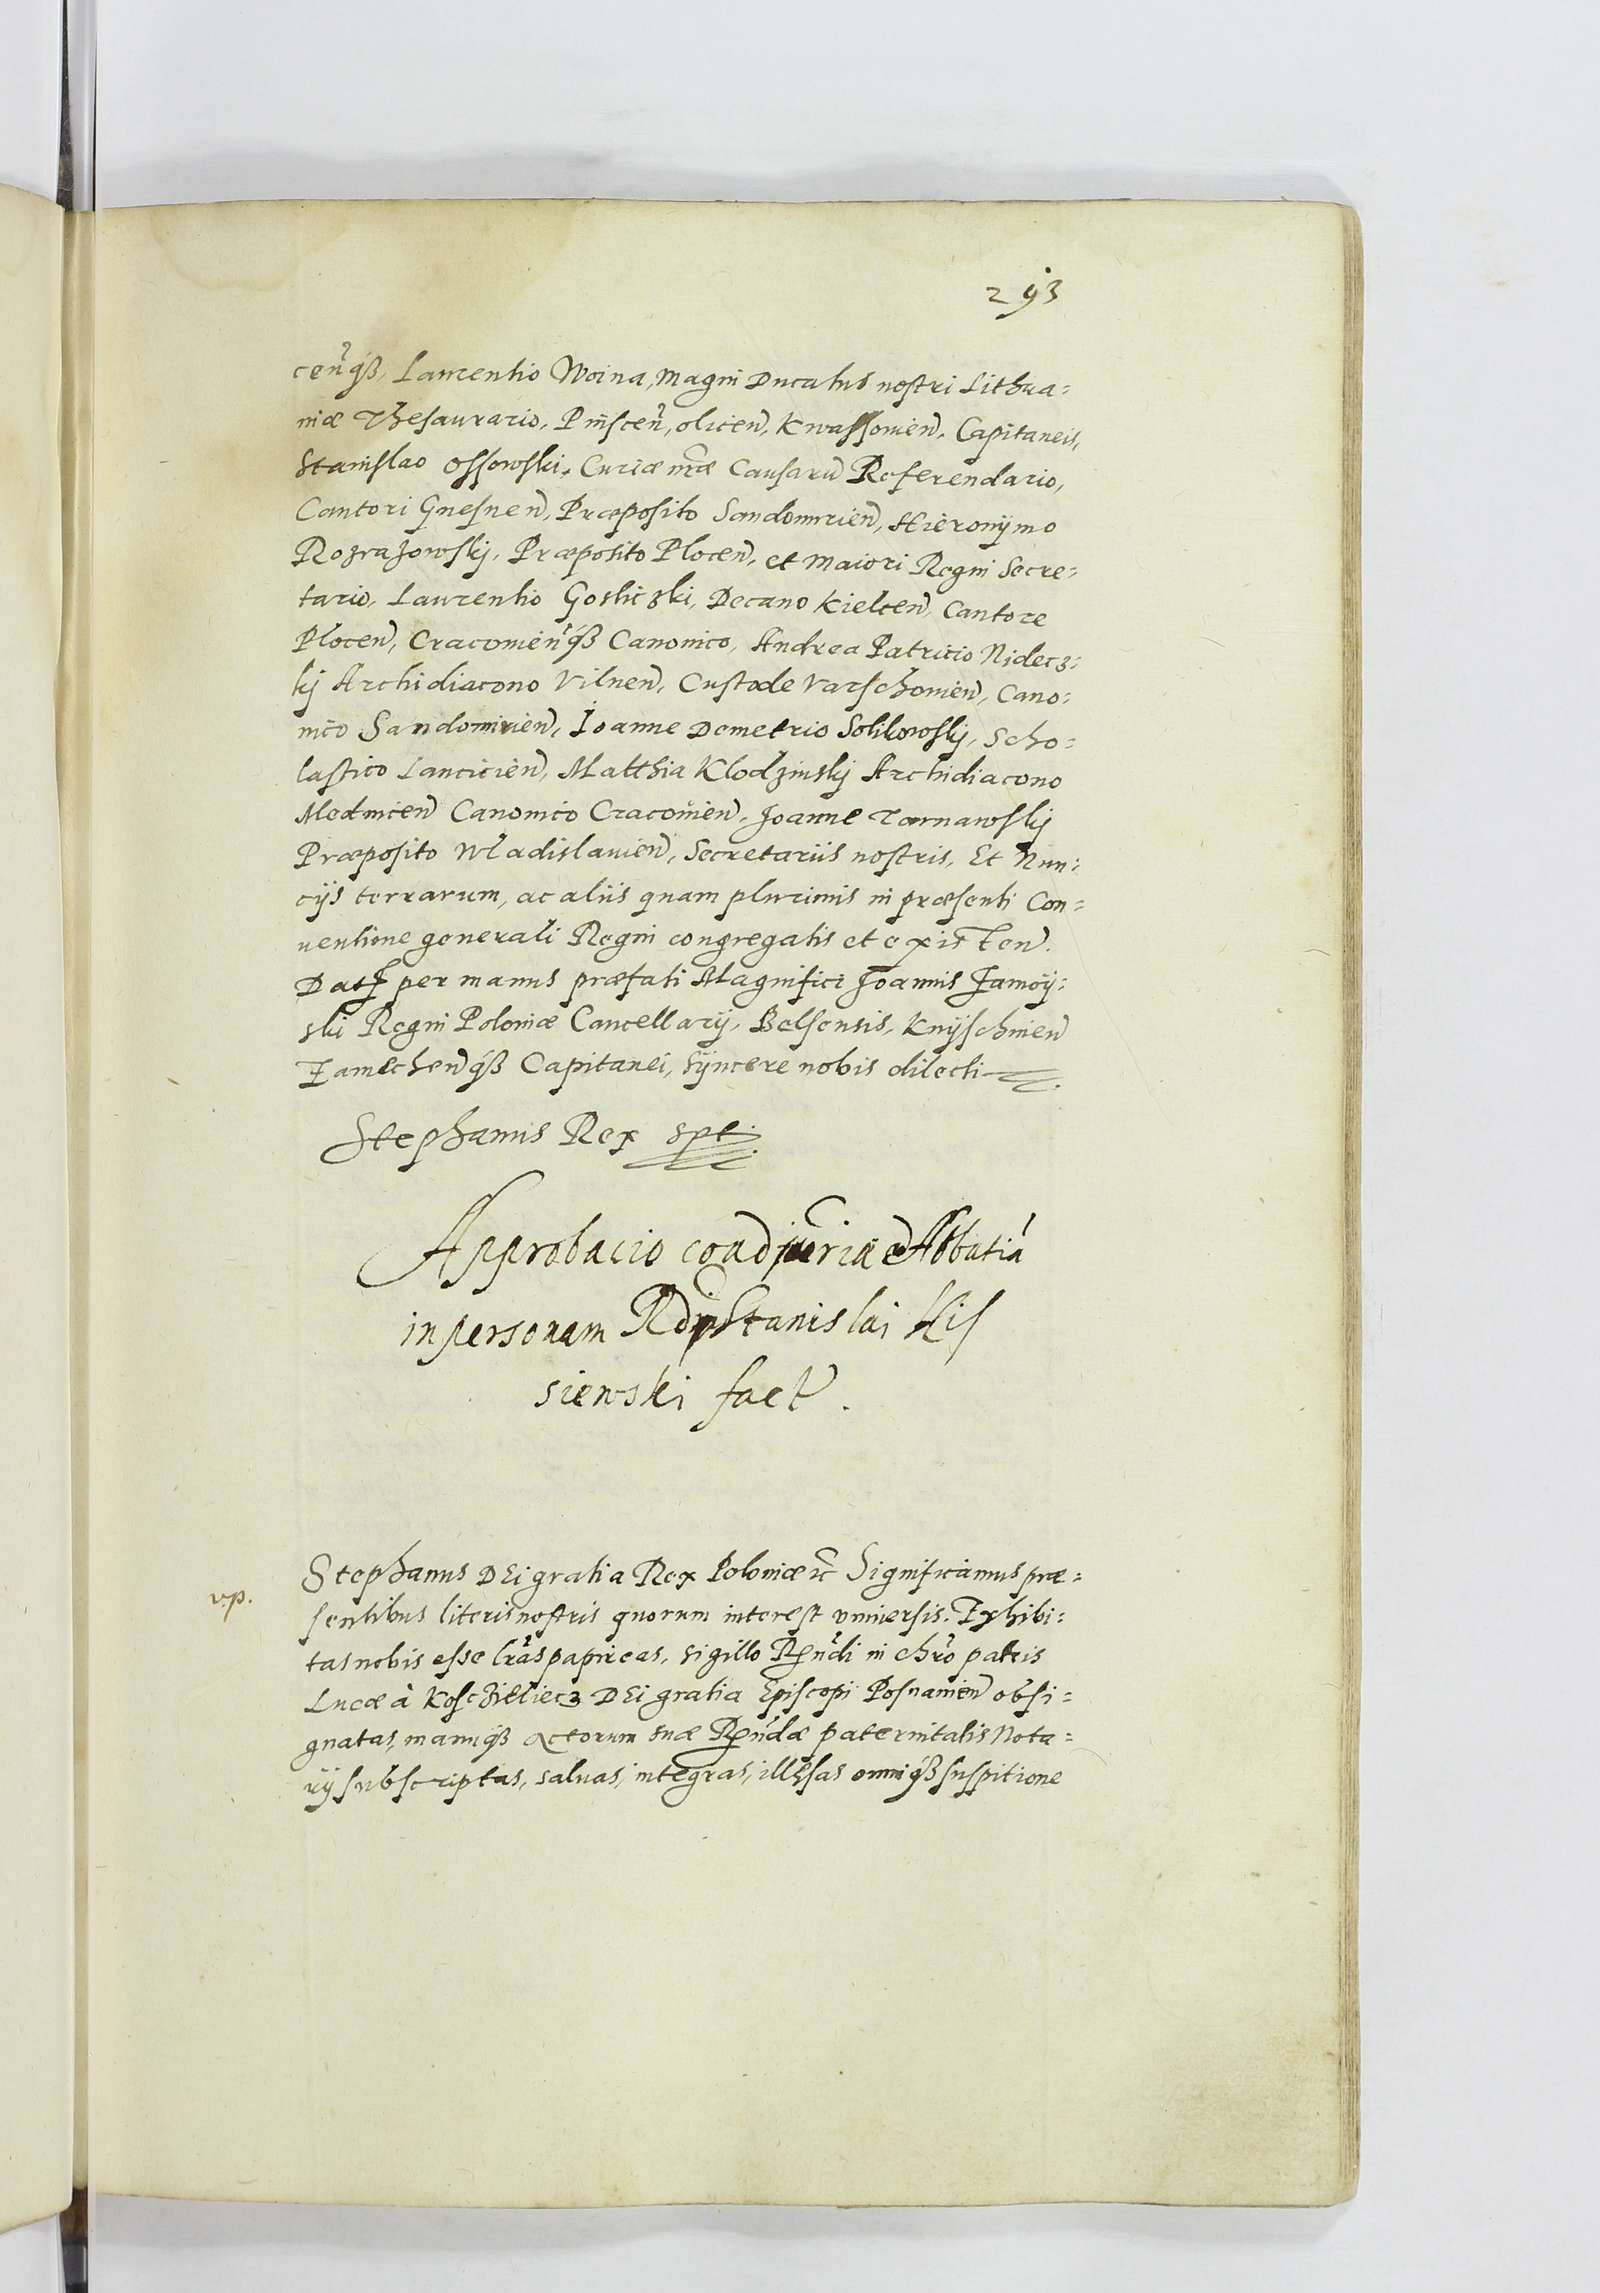 293
cen̄q₃, Laurentio Woina, Magni Ducatus nostri Lithua=
niæ Thesaurario, Pinscen̄, olicen, Kwassovien, Capitaneis,
Stanislao Ossowski, Curiæ nr̄æ Causarū Referendario,
Cantori Gnesnen, Præposito Sandomirien, Hieronymo
Rozrazowskÿ, Præposito Plocen, et Maiori Regni Secre=
tario, Laurentio Goslicski, Decano Kielcen, Cantore
Plocen, Cracovien̄q₃ Canonico, Andrea Patricio Nidecz=
kÿ Archidiacono Vilnen, Custode Varschovien, Cano=
nico Sandomirien, Ioanne Demetrio Solikowskÿ, Scho=
lastico Lancicien, Matthia Klodzinskÿ Archidiacono
Mednicen Canonico Cracovien, Joanne Tarnawskÿ
Præposito Wladislavien, Secretariis nostris, Et Nun=
cÿs terrarum, ac aliis quam plurimis in præsenti Con=
ventione generali Regni congregatis et existen.
Dat per manus præfati Magnifici Joannis Zamoÿ=
ski Regni Poloniæ Cancellarÿ, Belsensis, Knÿschinen
Zamechenq₃ Capitanei, sÿncere nobis dilecti
Stephanus Rex spt.
Approbacio coadjuriæ Abbatiā
in personam Rdi Stanislai Kis
siewski fact.
vp.
Stephanus DEi gratia Rex Poloniæ rc Significamus præ=
sentibus literis nostris quorum interest universis. Exhibi=
tas nobis esse lr̄as papireas, sigillo Rn̄di in chr̄o patris
Lucæ à Koscziieliecz DEi gratia Episcopi Posnanien obsi=
gnatas, manuq₃ Actorum suæ Rn̄dæ paternitatis Nota=
rÿ subscriptas, salvas, integras, illęsas omniq₃ suspitione